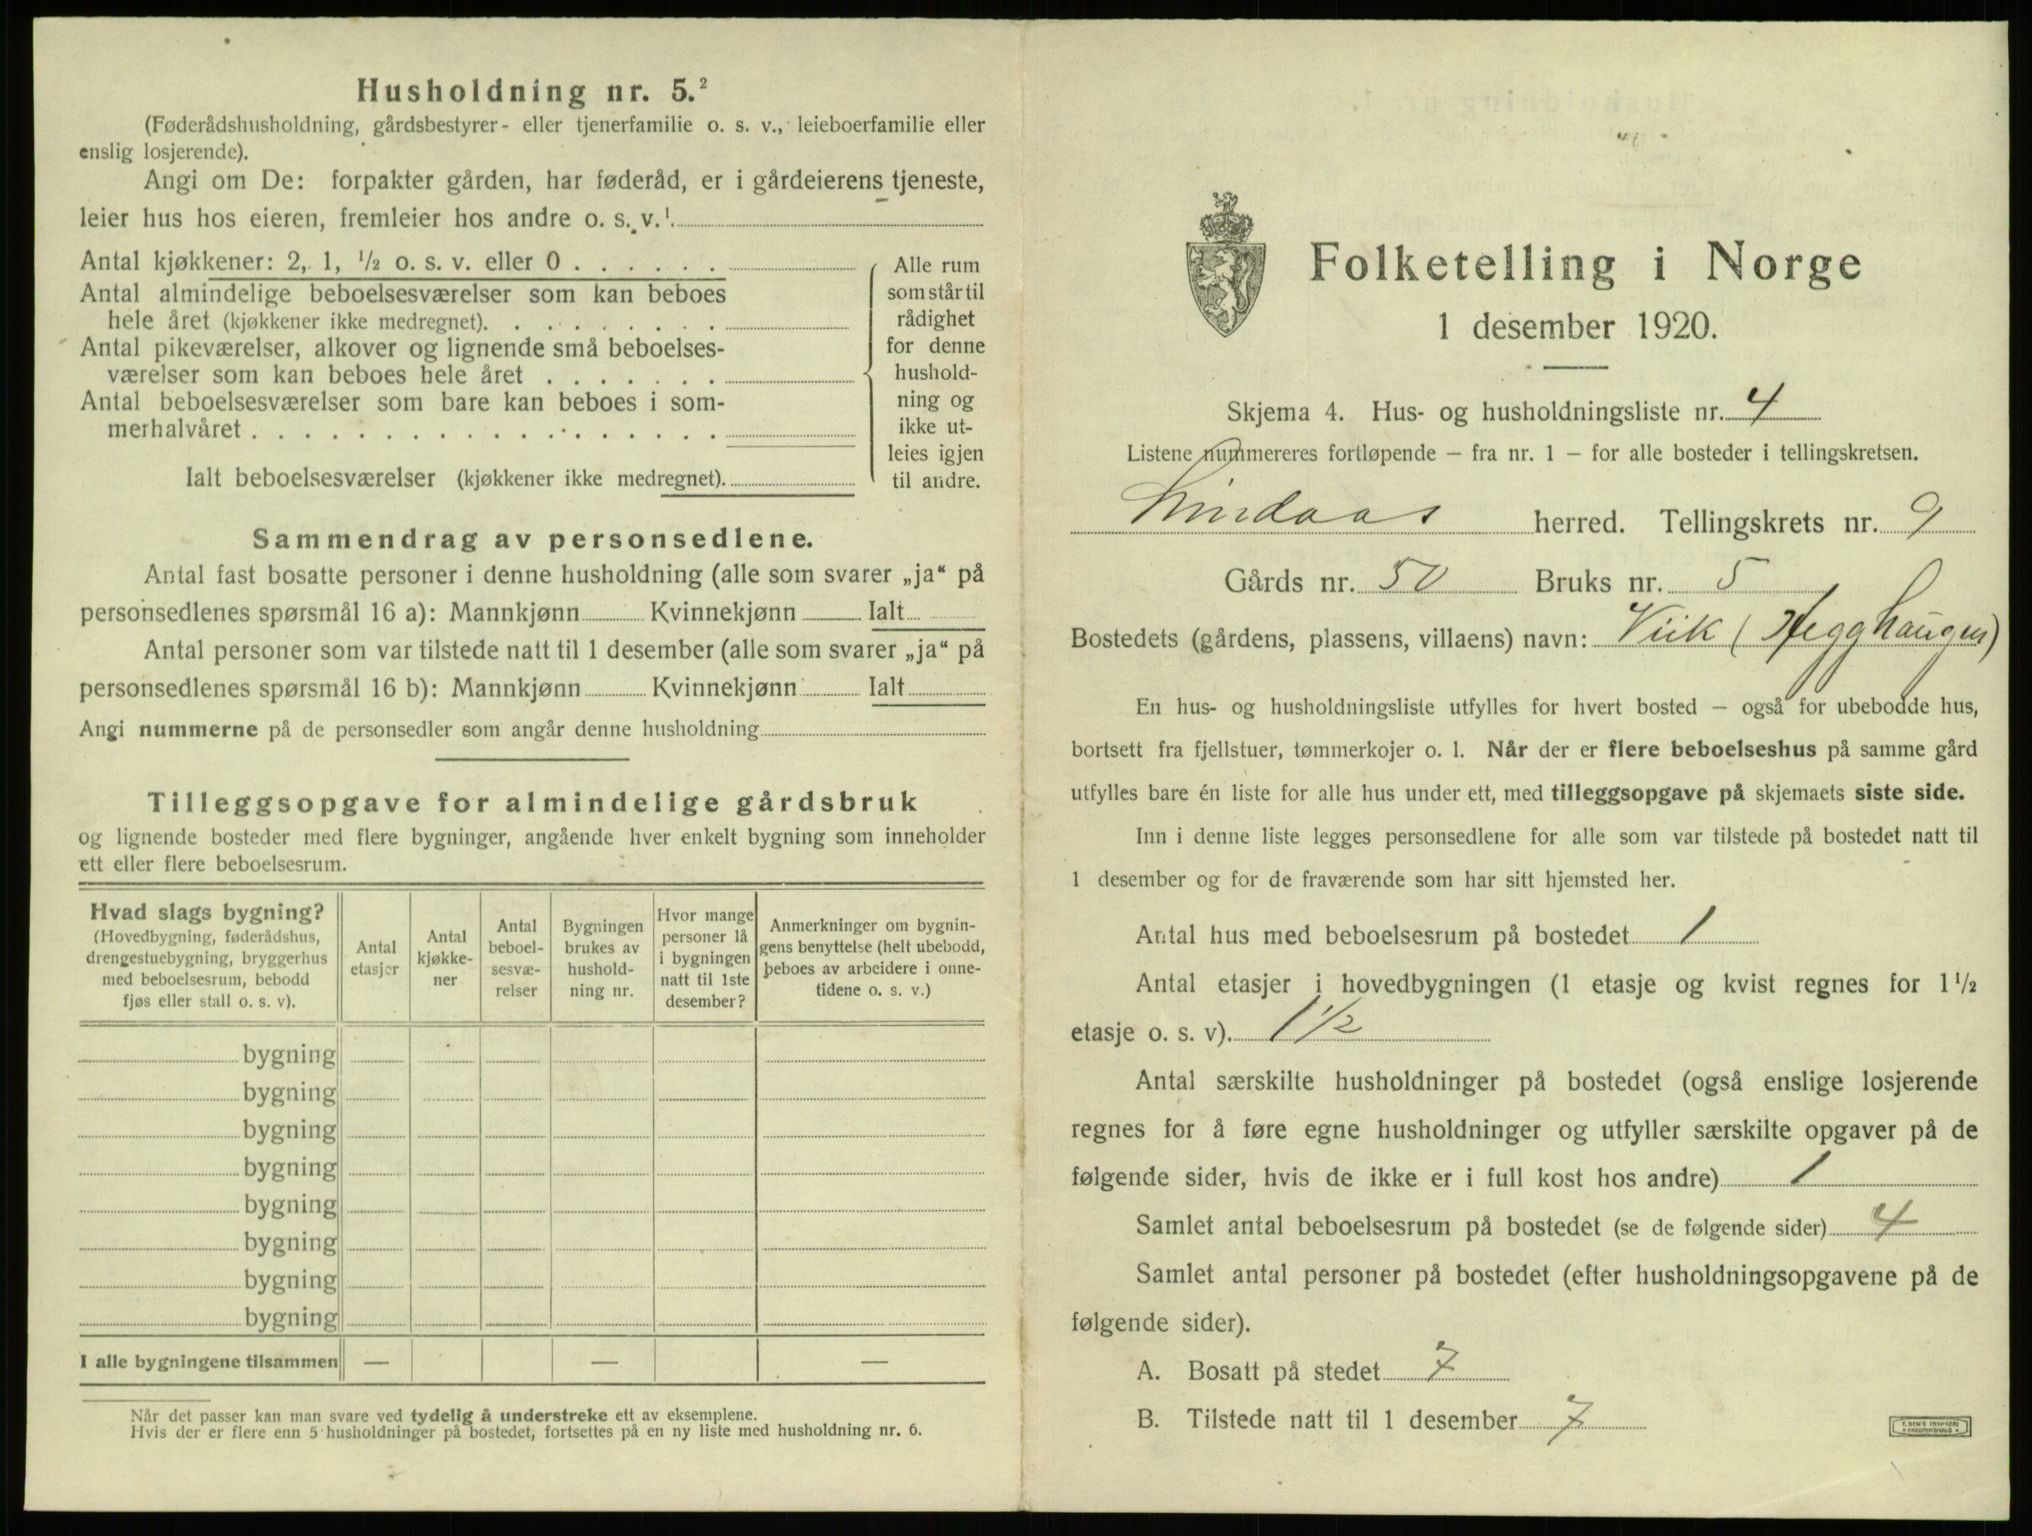 Husholdning nr. 5.²
(Føderådshusholdning, gårdsbestyrer- eller tjenerfamilie o. s. v., leieboerfamilie eller
enslig losjerende).
Angi om De: forpakter gården, har føderåd, er i gårdeierens tjeneste,
leier hus hos eieren, fremleier hos andre o. s. v.¹
Antal kjøkkener: 2, 1, ½ o. s. v. eller 0
Antal almindelige beboelsesværelser som kan beboes
hele året (kjøkkener ikke medregnet).
Antal pikeværelser, alkover og lignende små beboelses-
værelser som kan beboes hele året
Antal beboelsesværelser som bare kan beboes i som-
merhalvåret
Ialt beboelsesværelser (kjøkkener ikke medregnet).
Alle rum
som står til
rådighet
for denne
hushold-
ning og
ikke ut-
leies igjen
til andre.
Sammendrag av personsedlene.
Antal fast bosatte personer i denne husholdning (alle som svarer „ja“ på
personsedlenes spørsmål 16 a): Mannkjønn Kvinnekjønn Ialt
Antal personer som var tilstede natt til 1 desember (alle som svarer „ja“ på
personsedlenes spørsmål 16 b): Mannkjønn Kvinnekjønn Ialt
Angi nummerne på de personsedler som angår denne husholdning
Tilleggsopgave for almindelige gårdsbruk
og lignende bosteder med flere bygninger, angående hver enkelt bygning som inneholder
ett eller flere beboelsesrum.
Hvad slags bygning?
(Hovedbygning, føderådshus,
drengestuebygning, bryggerhus
med beboelsesrum, bebodd
fjøs eller stall o. s. v).
Antal
etasjer
Antal
kjøkke-
ner
Antal
beboel-
sesvæ-
relser
Bygningen
brukes av
hushold-
ning nr.
Hvor mange
personer lå
i bygningen
natt til 1ste
desember?
Anmerkninger om bygnin-
gens benyttelse (helt ubebodd,
beboes av arbeidere i onne-
tidene o. s. v.)
bygning
bygning
bygning
bygning
bygning
bygning
bygning
bygning
I alle bygningene tilsammen — — —
Når det passer kan man svare ved tydelig å understreke ett av eksemplene.
Hvis der er flere enn 5 husholdninger på bostedet, fortsettes på en ny liste med husholdning nr. 6.
Folketelling i Norge
1 desember 1920.
Skjema 4. Hus- og husholdningsliste nr. 4
Listene nummereres fortløpende – fra nr. 1 – for alle bosteder i tellingskretsen.
Lindaas herred. Tellingskrets nr. 9
Gårds nr. 50 Bruks nr. 5
Bostedets (gårdens, plassens, villaens) navn: Viik (Hegghaugen)
En hus- og husholdningsliste utfylles for hvert bosted – også for ubebodde hus,
bortsett fra fjellstuer, tømmerkojer o. l. Når der er flere beboelseshus på samme gård
utfylles bare én liste for alle hus under ett, med tilleggsopgave på skjemaets siste side.
Inn i denne liste legges personsedlene for alle som var tilstede på bostedet natt til
1 desember og for de fraværende som har sitt hjemsted her.
Antal hus med beboelsesrum på bostedet 1
Antal etasjer i hovedbygningen (1 etasje og kvist regnes for 1½
etasje o. s. v). 1½
Antal særskilte husholdninger på bostedet (også enslige losjerende
regnes for å føre egne husholdninger og utfyller særskilte opgaver på de
følgende sider, hvis de ikke er i full kost hos andre) 1
Samlet antal beboelsesrum på bostedet (se de følgende sider) 4
Samlet antal personer på bostedet (efter husholdningsopgavene på de
følgende sider).
A. Bosatt på stedet 7
B. Tilstede natt til 1 desember 7